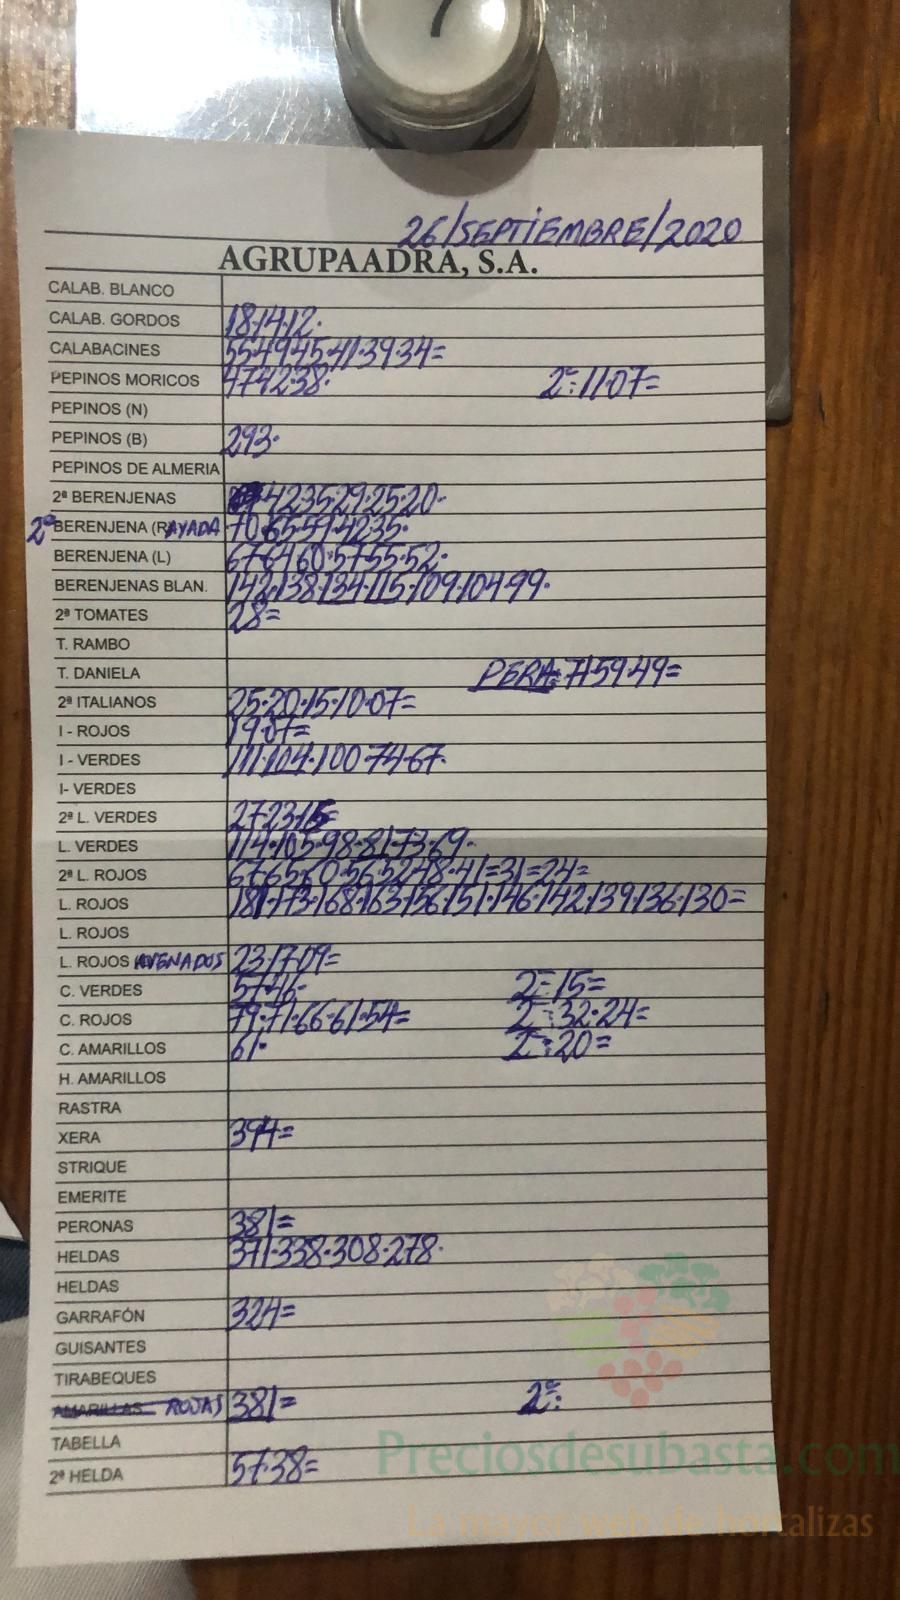 26/SEPTIEMBRE/2020
AGRUPAADRA, S.A.
CALAB. BLANCO
CALAB. GORDOS 18·14·12·
CALABACINES 55·49·45·41·39·34=
PEPINOS MORICOS 47·42·38· 2ª: 11·07=
PEPINOS (N)
PEPINOS (B) 293·
PEPINOS DE ALMERIA
2ª BERENJENAS 42·35·29·25·20·
2ª BERENJENA (RAYADA 70·65·57·42·35·
BERENJENA (L) 67·64·60·57·55·52·
BERENJENAS BLAN. 142·138·134·115·109·104·99·
2ª TOMATES 28=
T. RAMBO
T. DANIELA PERA: 71·59·49=
2ª ITALIANOS 25·20·15·10·07=
I - ROJOS 19·07=
I - VERDES 111·104·100·74·67·
I- VERDES
2ª L. VERDES 27·23·15=
L. VERDES 114·105·98·81·73·69·
2ª L. ROJOS 67·65·60·56·52·48·41=31=24=
L. ROJOS 181·173·168·163·156·151·146·142·139·136·130=
L. ROJOS
L. ROJOS AVENADOS 23·17·09=
C. VERDES 57·46· 2ª=15=
C. ROJOS 79·71·66·61·54= 2ª:32·24=
C. AMARILLOS 61· 2ª:20=
H. AMARILLOS
RASTRA
XERA 394=
STRIQUE
EMERITE
PERONAS 381=
HELDAS 371·338·308·278·
HELDAS
GARRAFÓN 324=
GUISANTES
TIRABEQUES
AMARILLAS ROJAS 381= 2ª:
TABELLA
2ª HELDA 57·38=
Preciosdesubasta.com
La mayor web de hortalizas